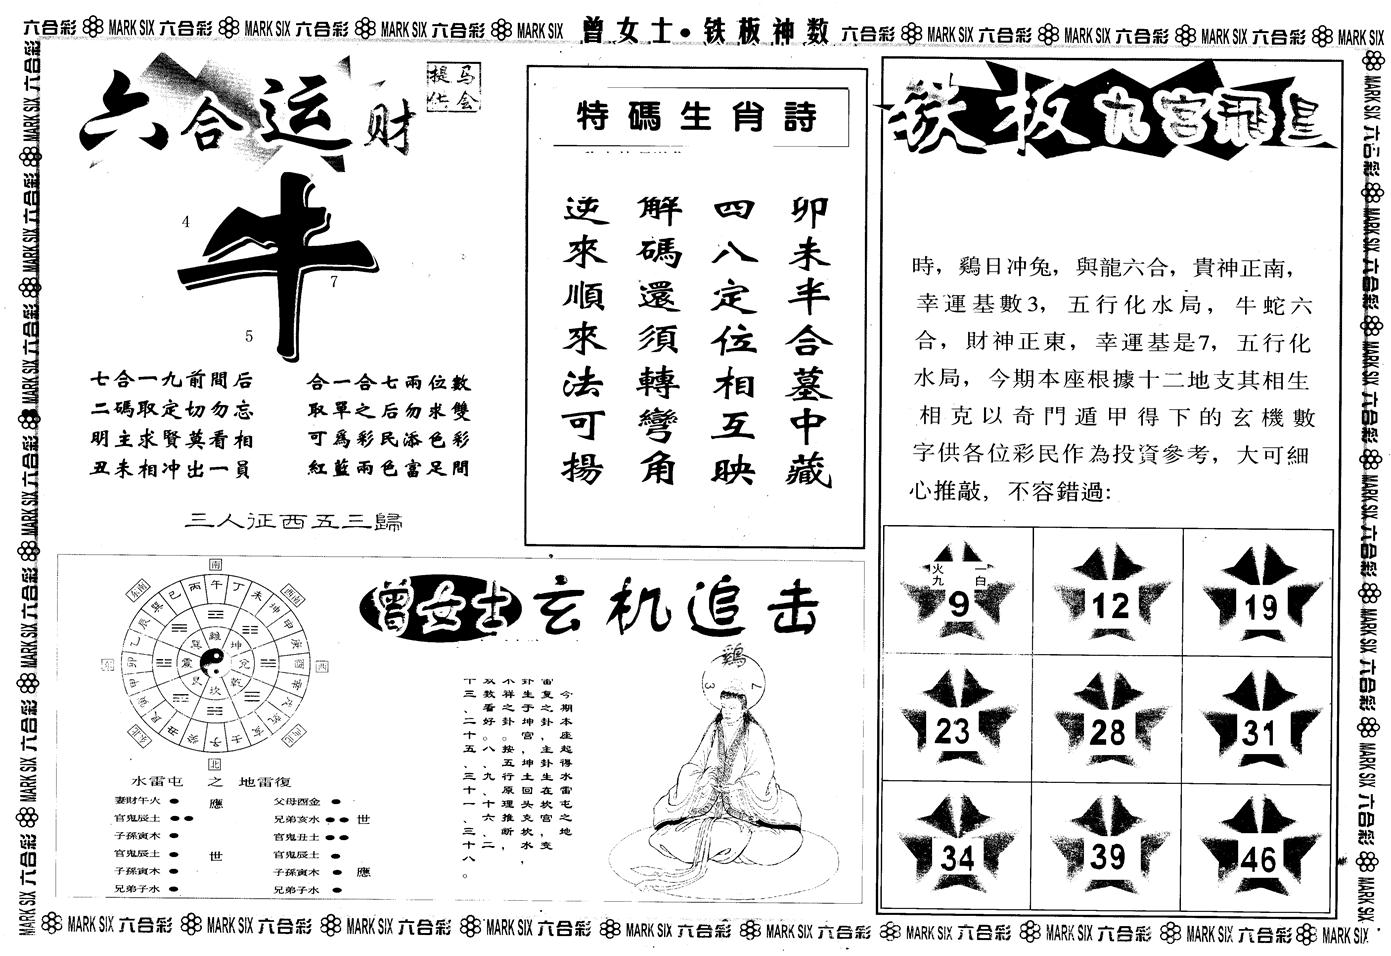 六合彩 MARK SIX 六合彩 MARK SIX 六合彩 MARK SIX 六合彩 MARK SIX 曾女士·铁板神数 六合彩 MARK SIX 六合彩 MARK SIX 六合彩 MARK SIX 六合彩 MARK SIX
六合运财
马会
提供
牛
4
7
5
七合一九前間后
二碼取定切勿忘
明主求賢莫看相
丑未相冲出一員
合一合七兩位數
取單之后勿求雙
可爲彩民添色彩
紅藍兩色富足間
三人征西五三歸
特碼生肖詩
卯未半合墓中藏
四八定位相互映
解碼還須轉彎角
逆來順來法可揚
铁板九宫飛星
時，鷄日冲兔，與龍六合，貴神正南，
幸運基數3，五行化水局，牛蛇六
合，財神正東，幸運基是7，五行化
水局，今期本座根據十二地支其相生
相克以奇門遁甲得下的玄機數
字供各位彩民作為投資參考，大可細
心推敲，不容錯過:
火 一
九 白
9
12
19
23
28
31
34
39
46
曾女士玄机追击
鷄
3 7
今期本座起得水雷屯之地
雷复之卦，主卦生在坎宫，变
卦生于坤宫，坤土回头克坎水，
不祥之卦。按五行原理推断，
双数看好。八、九、十、六、二、
十三、二十五、三十一、三十八。
南
东南
西南
东
西
东北
西北
北
水雷屯 之 地雷復
妻財午火 應 父母酉金
官鬼辰土 兄弟亥水 世
子孫寅木 官鬼丑土
官鬼辰土 世 官鬼辰土
子孫寅木 子孫寅木 應
兄弟子水 兄弟子水
MARK SIX 六合彩 MARK SIX 六合彩 MARK SIX 六合彩 MARK SIX 六合彩 MARK SIX 六合彩 MARK SIX 六合彩 MARK SIX 六合彩 MARK SIX 六合彩 MARK SIX 六合彩 MARK SIX